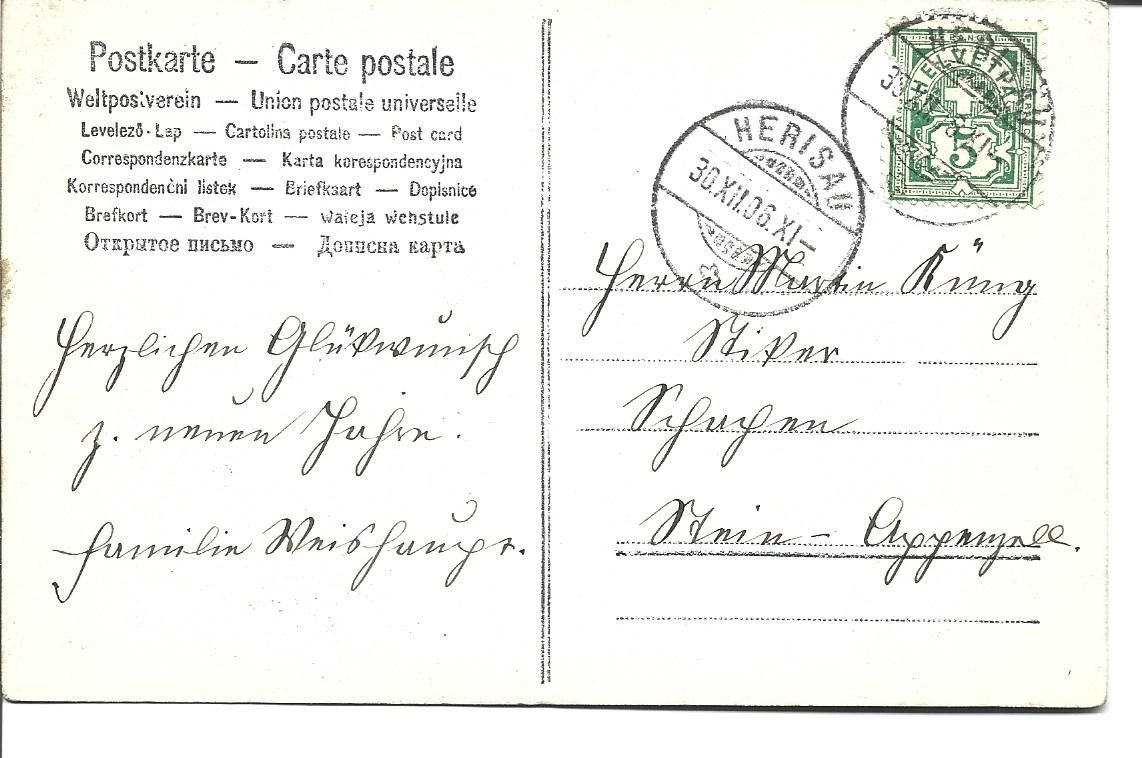 Postkarte — Carte postale
Weltpostverein — Union postale universelle
Levelező-Lap — Cartolina postale — Post card
Correspondenzkarte — Karta korespondencyjna
Korrespondenční lístek — Briefkaart — Dopisnice
Brefkort — Brev-Kort — waleja wchstule
Открытое письмо — Дописна карта
Herzlichen Glükwunsch
z. neuen Jahre.
Familie Weishaupt.
HERISAU
30.XII.06.XI–
HELVETIA
5
Herrn Martin Küng
Stiker
Schachen
Stein – Appenzell.